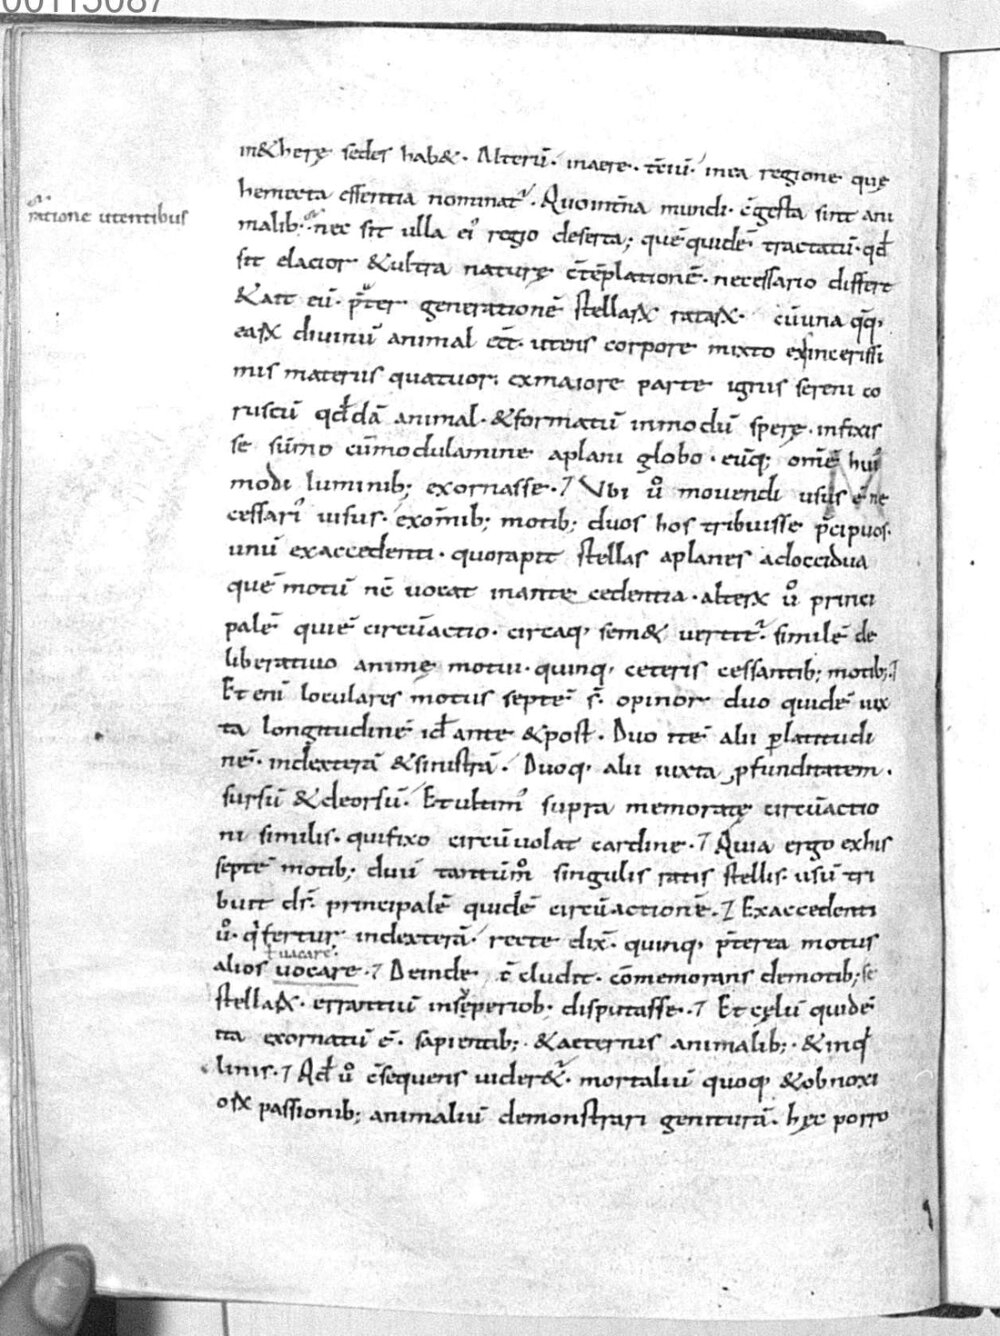 00115087
in&herę sedes hab&. Alterū. inaere. t̄ciū. inea regione quę
hemeeta essentia nominat̃. Quoīntīna mundi. c̄gesta sint ani
ratione utentibus
malib; nec sit ulla ei᾽ regio deserta; quę̄ quidē tractatū. qđ
sit elacior &ultra naturę c̄tēplationē. necessario differt
&ait eū. p̄ter generationē stellaꝝ rataꝝ. cūuna q̄q;
eaꝝ diuinū animal eēt. utens corpore mixto exsincerissi
mis materiis quatuor. exmaiore parte ignis sereni co
ruscū qđdā animal. &formatū inmodū sperę. infixis
se sūmo cūmodulamine aplani globo. eūq; omē hui᾽
modi luminib; exornasse. Vbi u᷎o mouendi usus ē ne
cessari᾽ uisus. exomīb; motib; duos hos tribuisse p̄cipuos.
unū exaccedenti. quorapit stellas aplanes adoccidua
quē motū nē uocat inante cedentia. alteꝝ ů princi
palē quiē circūactio. circaq; sem& uertit̃. similē de
liberatiuo animę motui. quinq; ceteris cessantib; motib;
Et enī loculares motus septē s̄. opinor duo quidē iux
ta longitudinē id᷎ ante &post. Duo itē alii ꝑlatitudi
nē. indexterā &sinistrā. Duoq; alii iuxta ꝓfunditatem.
sursū &deorsū. Etultim᾽ supra memoratę circūactio
ni similis. quifixo circū uolat cardine. Quia ergo exhis
septē motib; duū tantūm̊ singulis ratis stellis usū tri
buit ds̄. principalē quidē circūactionē. Exaccedenti
ů. q᷎fertur indexterā. recte dix̄. quinq; p̄terea motus
ł uacare
alios uocare. Deinde c̄cludit. cōmemorans demotib; se
stellaꝝ. errantiū insęperiob; disputasse. Et cęlū quidē
ita exornatū ē. sapientib; &aeternis animalib; &inq᷎
linis. Ad᷎ ů c̄sequens uider&̃. mortaliū quoq; &obnoxi
oꝝ passionib; animaliū demonstrari geniturā. hęc porro